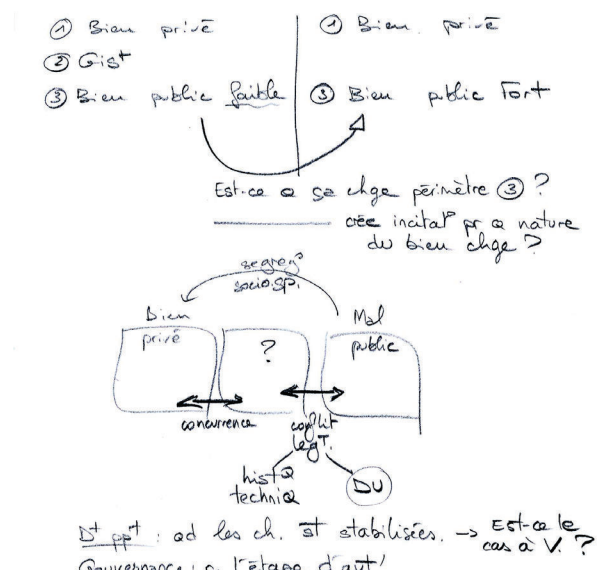 ① Bien privé
② Gist
③ Bien public faible
① Bien privé
③ Bien public Fort
Est-ce q ça chge périmètre ③ ?
crée incitat° pr q nature
du bien chge ?
segreg°
socio.sp.
Bien
privé
?
Mal
public
concurrence
conflit
legT.
hist Q
techniQ
DU
D+ pp+ : qd les ch. st stabilisées. → Est-ce le
cas à V. ?
Gouvernance : à l'étape d'avt